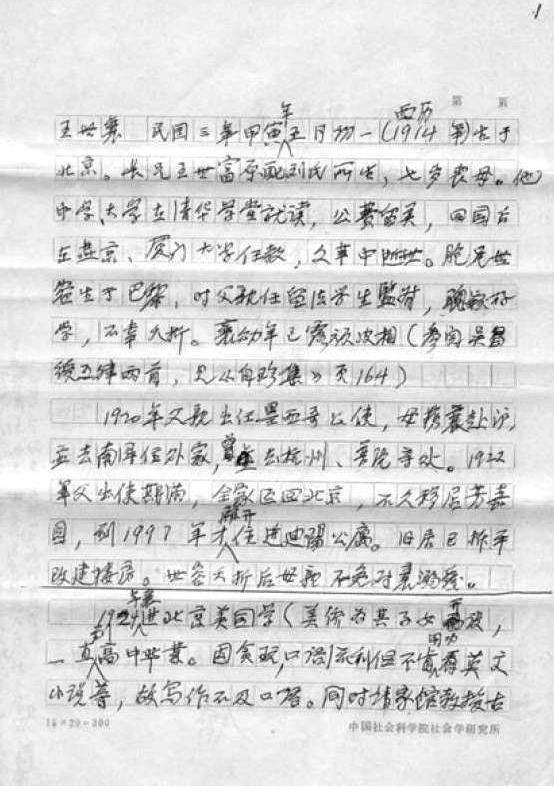 1
第 页
年 西历
王世襄 民国三年甲寅五月初一(1914年)生于
北京。长兄王世富原配刘氏所生，七岁丧母。他
中学、大学在清华学堂就读，公费留美，回国后
在燕京、厦门大学任教，文革中逝世。胞兄世
容生于巴黎，时父亲任留法学生监督，聪敏好
学，不幸夭折。襄幼年已露顽皮相(参阅吴昌
绶五律两首，见《自珍集》页164)
1920年父亲出任墨西哥公使，母携襄赴沪，
并去南浔住外家，曾去杭州、普陀等处。1922
年父出使期满，全家返回北京，不久移居芳嘉
园，到1997年才离开住进迪阳公寓。旧居已拆平
改建楼房。世容夭折后母亲不免对襄溺爱。
1924年襄进入北京美国学(美侨为其子女开设，
一直到高中毕业。因贪玩，口语流利但不肯用功看英文
小说等，故写作不及口语。同时请家馆教授古
15×20=300
中国社会科学院社会学研究所